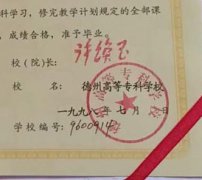 科学习，修完教学计划规定的全部课
，成绩合格，准予毕业。
校（院）长：许焕玉
校 名：德州高等专科学校
一九九八年七月 日
学校编号：9600914